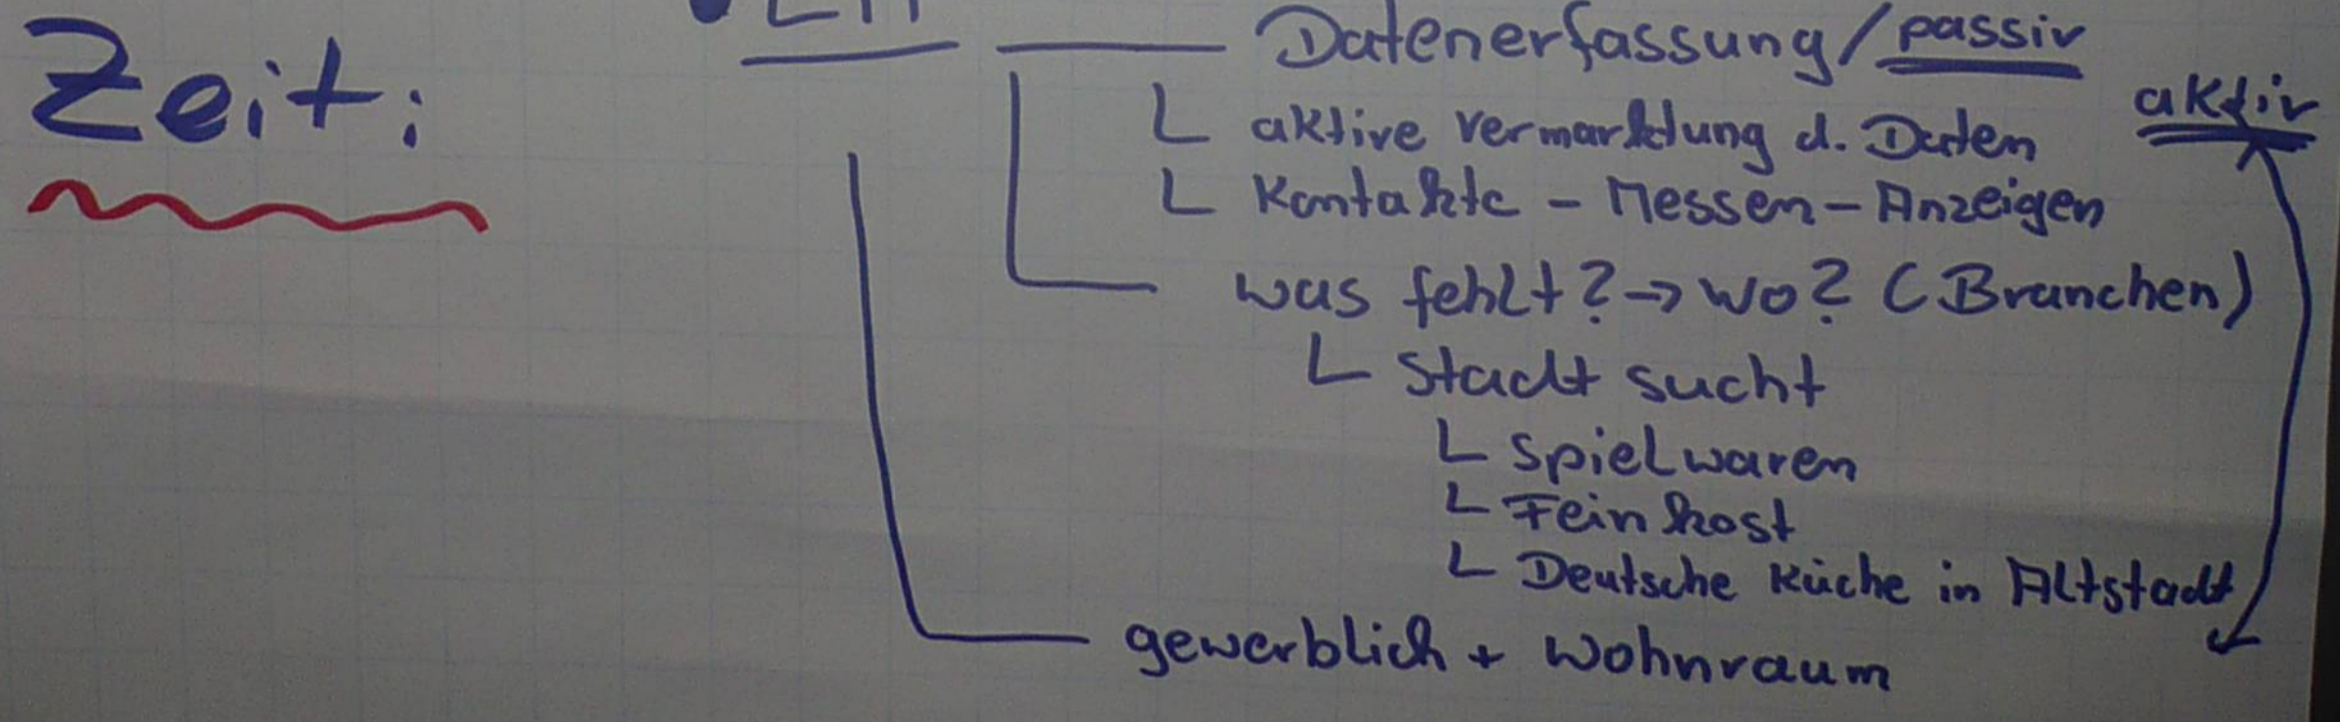 Zeit:
Datenerfassung/passiv
aktiv
aktive Vermarktung d. Daten
Kontakte - Messen - Anzeigen
was fehlt? → wo? (Branchen)
Stadt sucht
Spielwaren
Feinkost
Deutsche Küche in Altstadt
gewerblich + Wohnraum